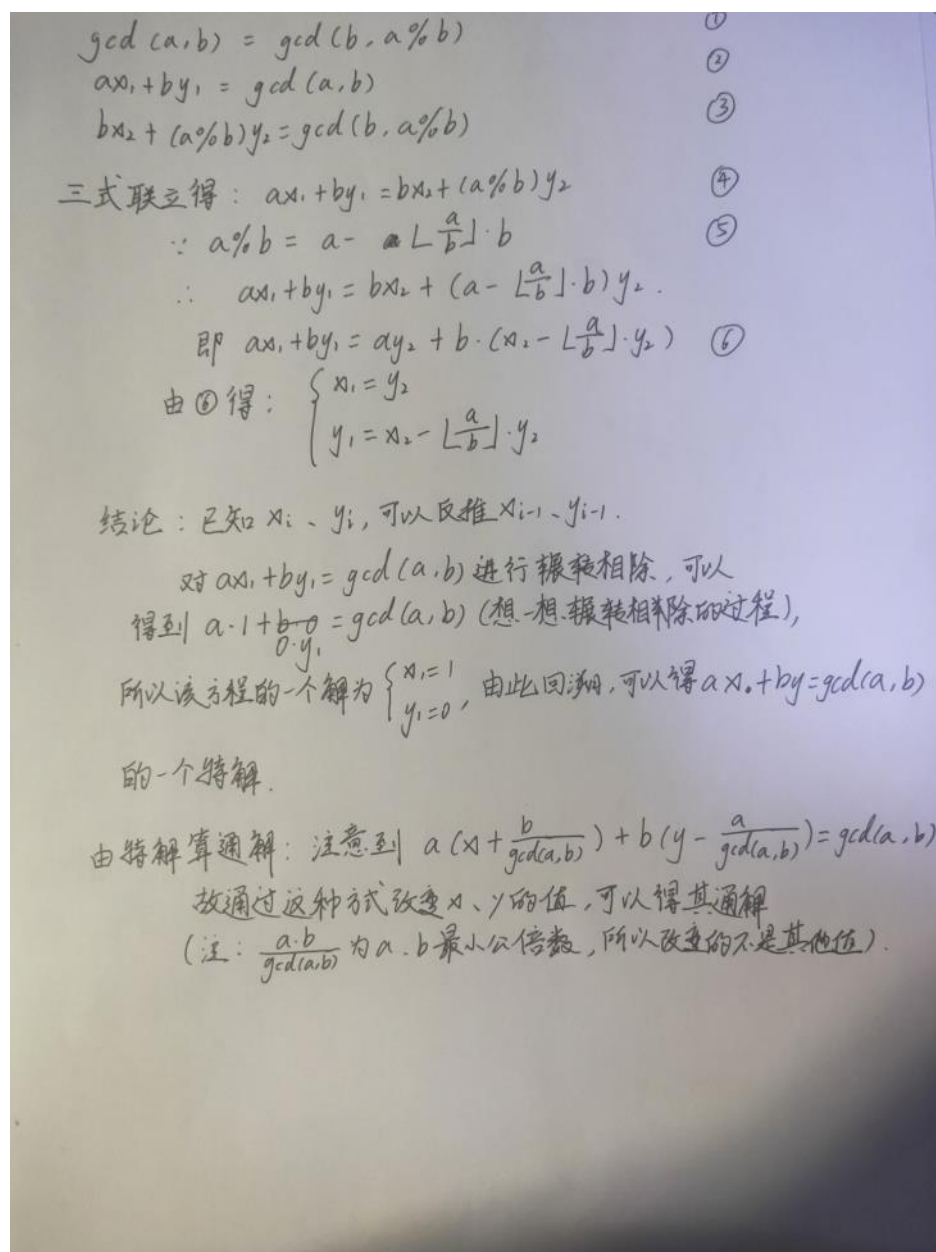 gcd(a,b) = gcd(b, a%b) ①
ax₁+by₁ = gcd(a,b) ②
bx₂+(a%b)y₂=gcd(b,a%b) ③
三式联立得: ax₁+by₁=bx₂+(a%b)y₂ ④
∵ a%b = a- ⌊a/b⌋·b ⑤
∴ ax₁+by₁=bx₂+(a-⌊a/b⌋·b)y₂.
即 ax₁+by₁=ay₂+b·(x₂-⌊a/b⌋·y₂) ⑥
由⑥得: { x₁=y₂
y₁=x₂-⌊a/b⌋·y₂
结论:已知xi、yi,可以反推xi-1、yi-1.
对ax₁+by₁=gcd(a,b)进行辗转相除,可以
得到 a·1+0·y₁=gcd(a,b)(想一想辗转相除的过程),
所以该方程的一个解为{ x₁=1
y₁=0, 由此回溯,可以得ax₀+by=gcd(a,b)
的一个特解.
由特解算通解:注意到 a(x+b/gcd(a,b))+b(y-a/gcd(a,b))=gcd(a,b)
故通过这种方式改变x、y的值,可以得其通解
(注: a·b/gcd(a,b) 为a.b最小公倍数,所以改变的不是其他值).